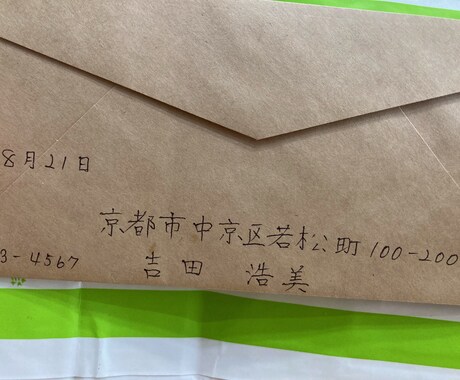 8月21日
京都市中京区若松町100-200
3-4567
吉田 浩美